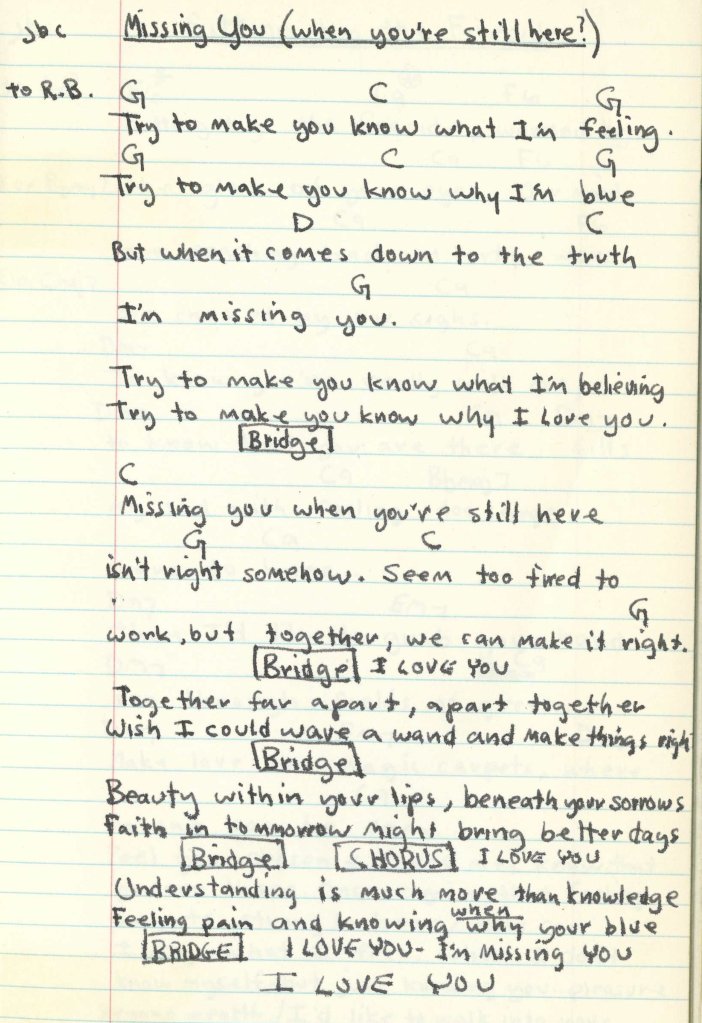 jbc Missing You (when you're still here?)
to R.B. G C G
Try to make you know what I'm feeling.
G C G
Try to make you know why I'm blue
D C
But when it comes down to the truth
G
I'm missing you.
Try to make you know what I'm believing
Try to make you know why I Love you.
Bridge
C
Missing you when you're still here
G C
isn't right somehow. Seem too tired to
G
work, but together, we can make it right.
Bridge I LOVE YOU
Together far apart, apart together
Wish I could wave a wand and make things righ
Bridge
Beauty within your lips, beneath your sorrows
Faith in tommorrow might bring better days
Bridge CHORUS I LOVE YOU
Understanding is much more than knowledge
when
Feeling pain and knowing why your blue
BRIDGE I LOVE YOU- I'm Missing YOU
I LOVE YOU